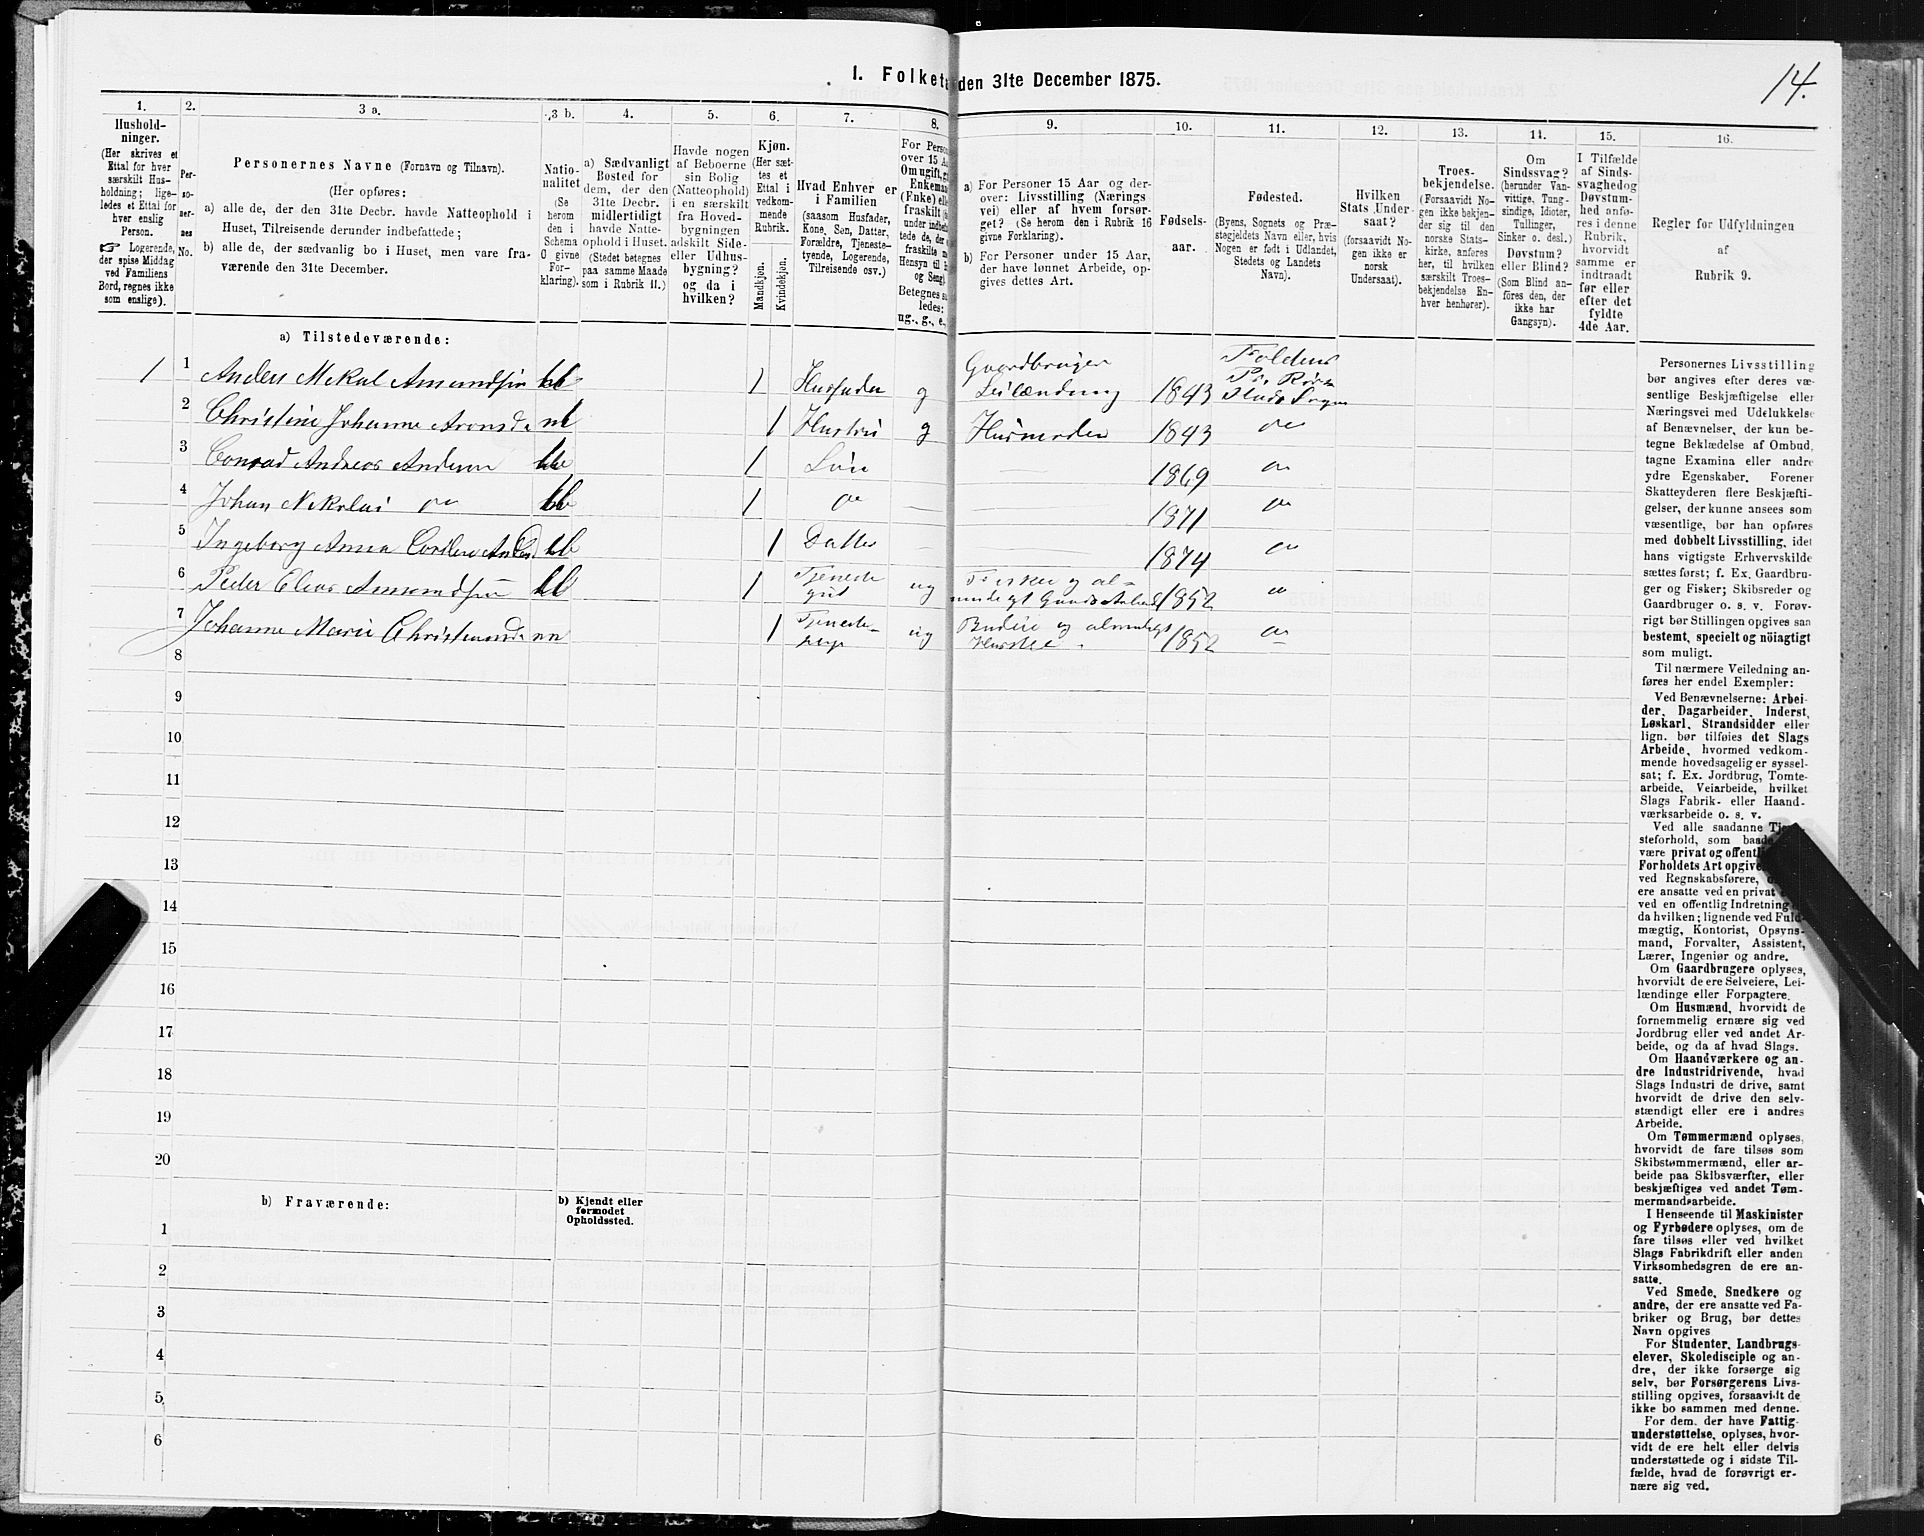 14.
1. Folketæ den 31te December 1875.
1.
Hushold-
ninger.
(Her skrives et
Ettal for hver
særskilt Hus-
holdning; lige-
ledes et Ettal for
hver enslig
Person.
☞ Logerende,
der spise Middag
ved Familiens
Bord, regnes ikke
som enslige).
2.
Per-
so-
ner-
nes
No.
3 a.
Personernes Navne (Fornavn og Tilnavn).
(Her opføres:
a) alle de, der den 31te Decbr. havde Natteophold i
Huset, Tilreisende derunder indbefattede;
b) alle de, der sædvanlig bo i Huset, men vare fra-
værende den 31te December.
3 b.
Natio-
nalitet
(Se
herom
den i
Schema
O givne
For-
klaring).
4.
a) Sædvanligt
Bosted for
dem, der den
31te Decbr.
midlertidigt
havde Natte-
ophold i Huset.
(Stedet betegnes
paa samme Maade
som i Rubrik 11.)
5.
Havde nogen
af Beboerne
sin Bolig
(Natteophold)
i en særskilt
fra Hoved-
bygningen
adskilt Side-
eller Udhus-
bygning?
og da i
hvilken?
6.
Kjøn.
(Her sæt-
tes et
Ettal i
vedkom-
mende
Rubrik.
Mandkjøn.
Kvindekjøn.
7.
Hvad Enhver er
i Familien
(saasom Husfader,
Kone, Søn, Datter,
Forældre, Tjeneste-
tyende, Logerende,
Tilreisende osv.)
8.
For Person
over 15 A
Om ugift, g
Enkema
(Enke) ell
fraskilt
under indbe
tede de, de
fraskilte m
Hensyn til
og Seng)
Betegnes sa
ledes:
ug., g., e.,
9.
a) For Personer 15 Aar og der-
over: Livsstilling (Nærings
vei) eller af hvem forsør-
get? (Se herom den i Rubrik 16
givne Forklaring).
b) For Personer under 15 Aar,
der have lønnet Arbeide, op-
gives dettes Art.
10.
Fødsels-
aar.
11.
Fødested.
(Byens, Sognets og Præ-
stegjeldets Navn eller, hvis
Nogen er født i Udlandet,
Stedets og Landets
Navn).
12.
Hvilken
Stats Under-
saat?
(forsaavidt No-
gen ikke er
norsk
Undersaat).
13.
Troes-
bekjendelse.
(Forsaavidt No-
gen ikke bekjen-
der sig til den
norske Stats-
kirke, anføres
her, til hvilken
særskilt Troes-
bekjendelse En-
hver henhører).
14.
Om
Sindssvag?
(herunder Van-
vittige, Tung-
sindige, Idioter,
Tullinger,
Sinker o. desl.)
Døvstum?
eller Blind?
(Som Blind an-
føres den, der
ikke har
Gangsyn).
15.
I Tilfælde
af Sinds-
svaghed og
Døvstum-
hed anfø-
res i denne
Rubrik,
hvorvidt
samme er
indtraadt
før eller
efter det
fyldte
4de Aar.
16.
Regler for Udfyldningen
af
Rubrik 9.
a) Tilstedeværende:
1 1 Anders Mikal Amundsen 1 Husfader g Gaardbruger Leilænding 1843 Foldens
2 Christine Johanne Aronsd. 1 Hustru g 1843
3 Conrad Andreas Andersen 1 Søn 1869
4 Johan Nikolai 1 1871
5 Ingeborg Anna 1 Datter 1874
6 Peder Elias Amundsen 1 Tjeneste ug Fisker og 1852
7 Johanne Marie Christiansd. 1 Tjeneste- ug Budeie og 1852
8
9
10
11
12
13
14
15
16
17
18
19
20
b) Fraværende:
b) Kjendt eller
formodet
Opholdssted.
1
2
3
4
5
6
Personernes Livsstilling
bør angives efter deres væ-
sentlige Beskjæftigelse eller
Næringsvei med Udelukkelse
af Benævnelser, der kun be-
tegne Beklædelse af Ombud,
tagne Examina eller andre
ydre Egenskaber. Forener
Skatteyderen flere Beskjæfti-
gelser, der kunne ansees som
væsentlige, bør han opføres
med dobbelt Livsstilling, idet
hans vigtigste Erhvervskilde
sættes først; f. Ex. Gaardbru-
ger og Fisker; Skibsreder og
Gaardbruger o. s. v. Forøv-
rigt bør Stillingen opgives saa
bestemt, specielt og nöiagtigt
som muligt.
Til nærmere Veiledning an-
føres her endel Exempler:
Ved Benævnelserne: Arbei-
der, Dagarbeider, Inderst,
Løskarl, Strandsidder eller
lign. bør tilføies det Slags
Arbeide, hvormed vedkom-
mende hovedsagelig er syssel-
sat; f. Ex. Jordbrug, Tomte-
arbeide, Veiarbeide, hvilket
Slags Fabrik- eller Haand-
værksarbeide o. s. v.
Ved alle saadanne Tje
steforhold, som baade
være privat og offentli
Forholdets Art opgive
ved Regnskabsførere,
ere ansatte ved en privat
ved en offentlig Indretning
da hvilken; lignende ved Fuld-
mægtig, Kontorist, Opsyns-
mand, Forvalter, Assistent,
Lærer, Ingeniør og andre.
Om Gaardbrugere oplyses,
hvorvidt de ere Selveiere, Lei-
lændinge eller Forpagtere.
Om Husmænd, hvorvidt de
fornemmelig ernære sig ved
Jordbrug eller ved andet Ar-
beide, og da af hvad Slags.
Om Haandværkere og an-
dre Industridrivende, hvad
Slags Industri de drive, samt
hvorvidt de drive den selv-
stændigt eller ere i andres
Arbeide.
Om Tømmermænd oplyses,
hvorvidt de fare tilsøs som
Skibstømmermænd, eller ar-
beide paa Skibsværfter, eller
beskjæftiges ved andet Tøm-
mermandsarbeide.
I Henseende til Maskinister
og Fyrbødere oplyses, om de
fare tilsøs eller ved hvilket
Slags Fabrikdrift eller anden
Virksomhedsgren de ere an-
satte.
Ved Smede, Snedkere og
andre, der ere ansatte ved Fa-
briker og Brug, bør dettes
Navn opgives
For Studenter, Landbrugs-
elever, Skoledisciple og an-
dre, der ikke forsørge sig
selv, bør Forsørgerens Livs-
stilling opgives, forsaavidt de
ikke bo sammen med denne.
For dem, der have Fattig-
understøttelse, oplyses, hvor-
vidt de ere helt eller delvis
understøttede og i sidste Til-
fælde, hvad de forøvrigt er-
nære sig ved.